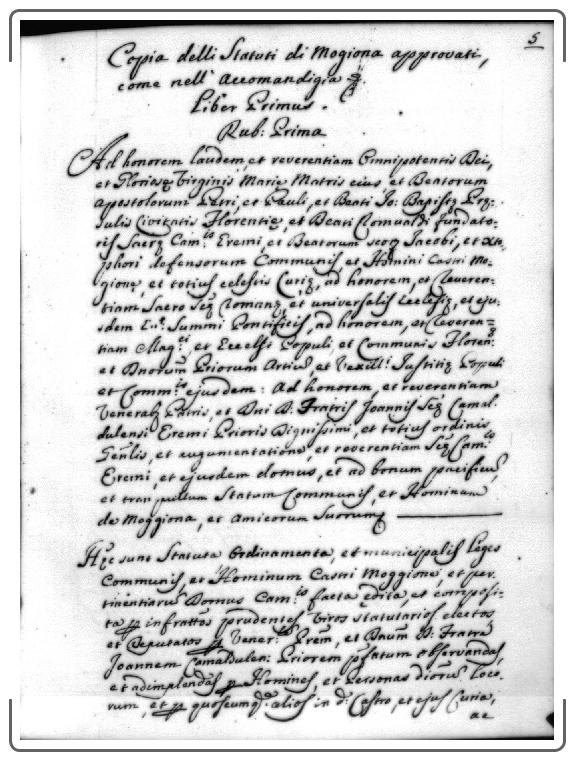 5
Copia delli Statuti di Mogiona approvati,
come nell' Accomandigia
Liber Primus.
Rub: Prima
Ad honorem laudem, et reverentiam Omnipotentis Dei,
et Gloriosę Virginis Marię Matris eius, et Beatorum
Apostolorum Petri, et Pauli, et Beati Jo: Baptistę Prę:
sulis Civitatis Florentię, et Beati Romualdi fundato-
ris Sacrę Cam:is Eremi, et Beatorum Jacobi, et Xto-
phori defensorum Communis, et Hominū Castri Mo-
gionę, et totius celestis Curię, ad honorem, et Reveren-
tiam Sacro Sctę Romanę, et universalis Ecclesię, et eju-
sdem Summi Pontificis, ad honorem, et Reveren-
tiam Mag:ci, et Excelsi Populi, et Communis Floren:
et Dnorum Priorum Artiū, et Vexill:i Justitię Populi
et Comm:is ejusdem: Ad honorem, et reverentiam
Venerab: Patris, et Dni D: Fratris Joannis Camal-
dulensi Eremi Prioris Dignissimi, et totius ordinis
Genlis, et augumentatione, et reverentiam Cam:is
Eremi, et ejusdem domus, et ad bonum pacificū,
et tranquillum Statum Communis, et Hominum
de Moggiona, et Amicorum Suorum
Hęc sunt Statuta Ordinamenta, et municipalis Leges
Communis, et Hominum Castri Moggionę, et per
tinentiarū Domus Cam:is facta ędita, et composi-
ta infrattos prudentes Viros statutarios electos,
et Deputatos Vener: Prem, et Dnum D: Fratrē
Joannem Camaldulen: Priorem observandas,
et adimplendas Homines, et Personas dictorū Loco-
rum, et quoscumq: alios in d: Castro, et ejus Curia,
ac